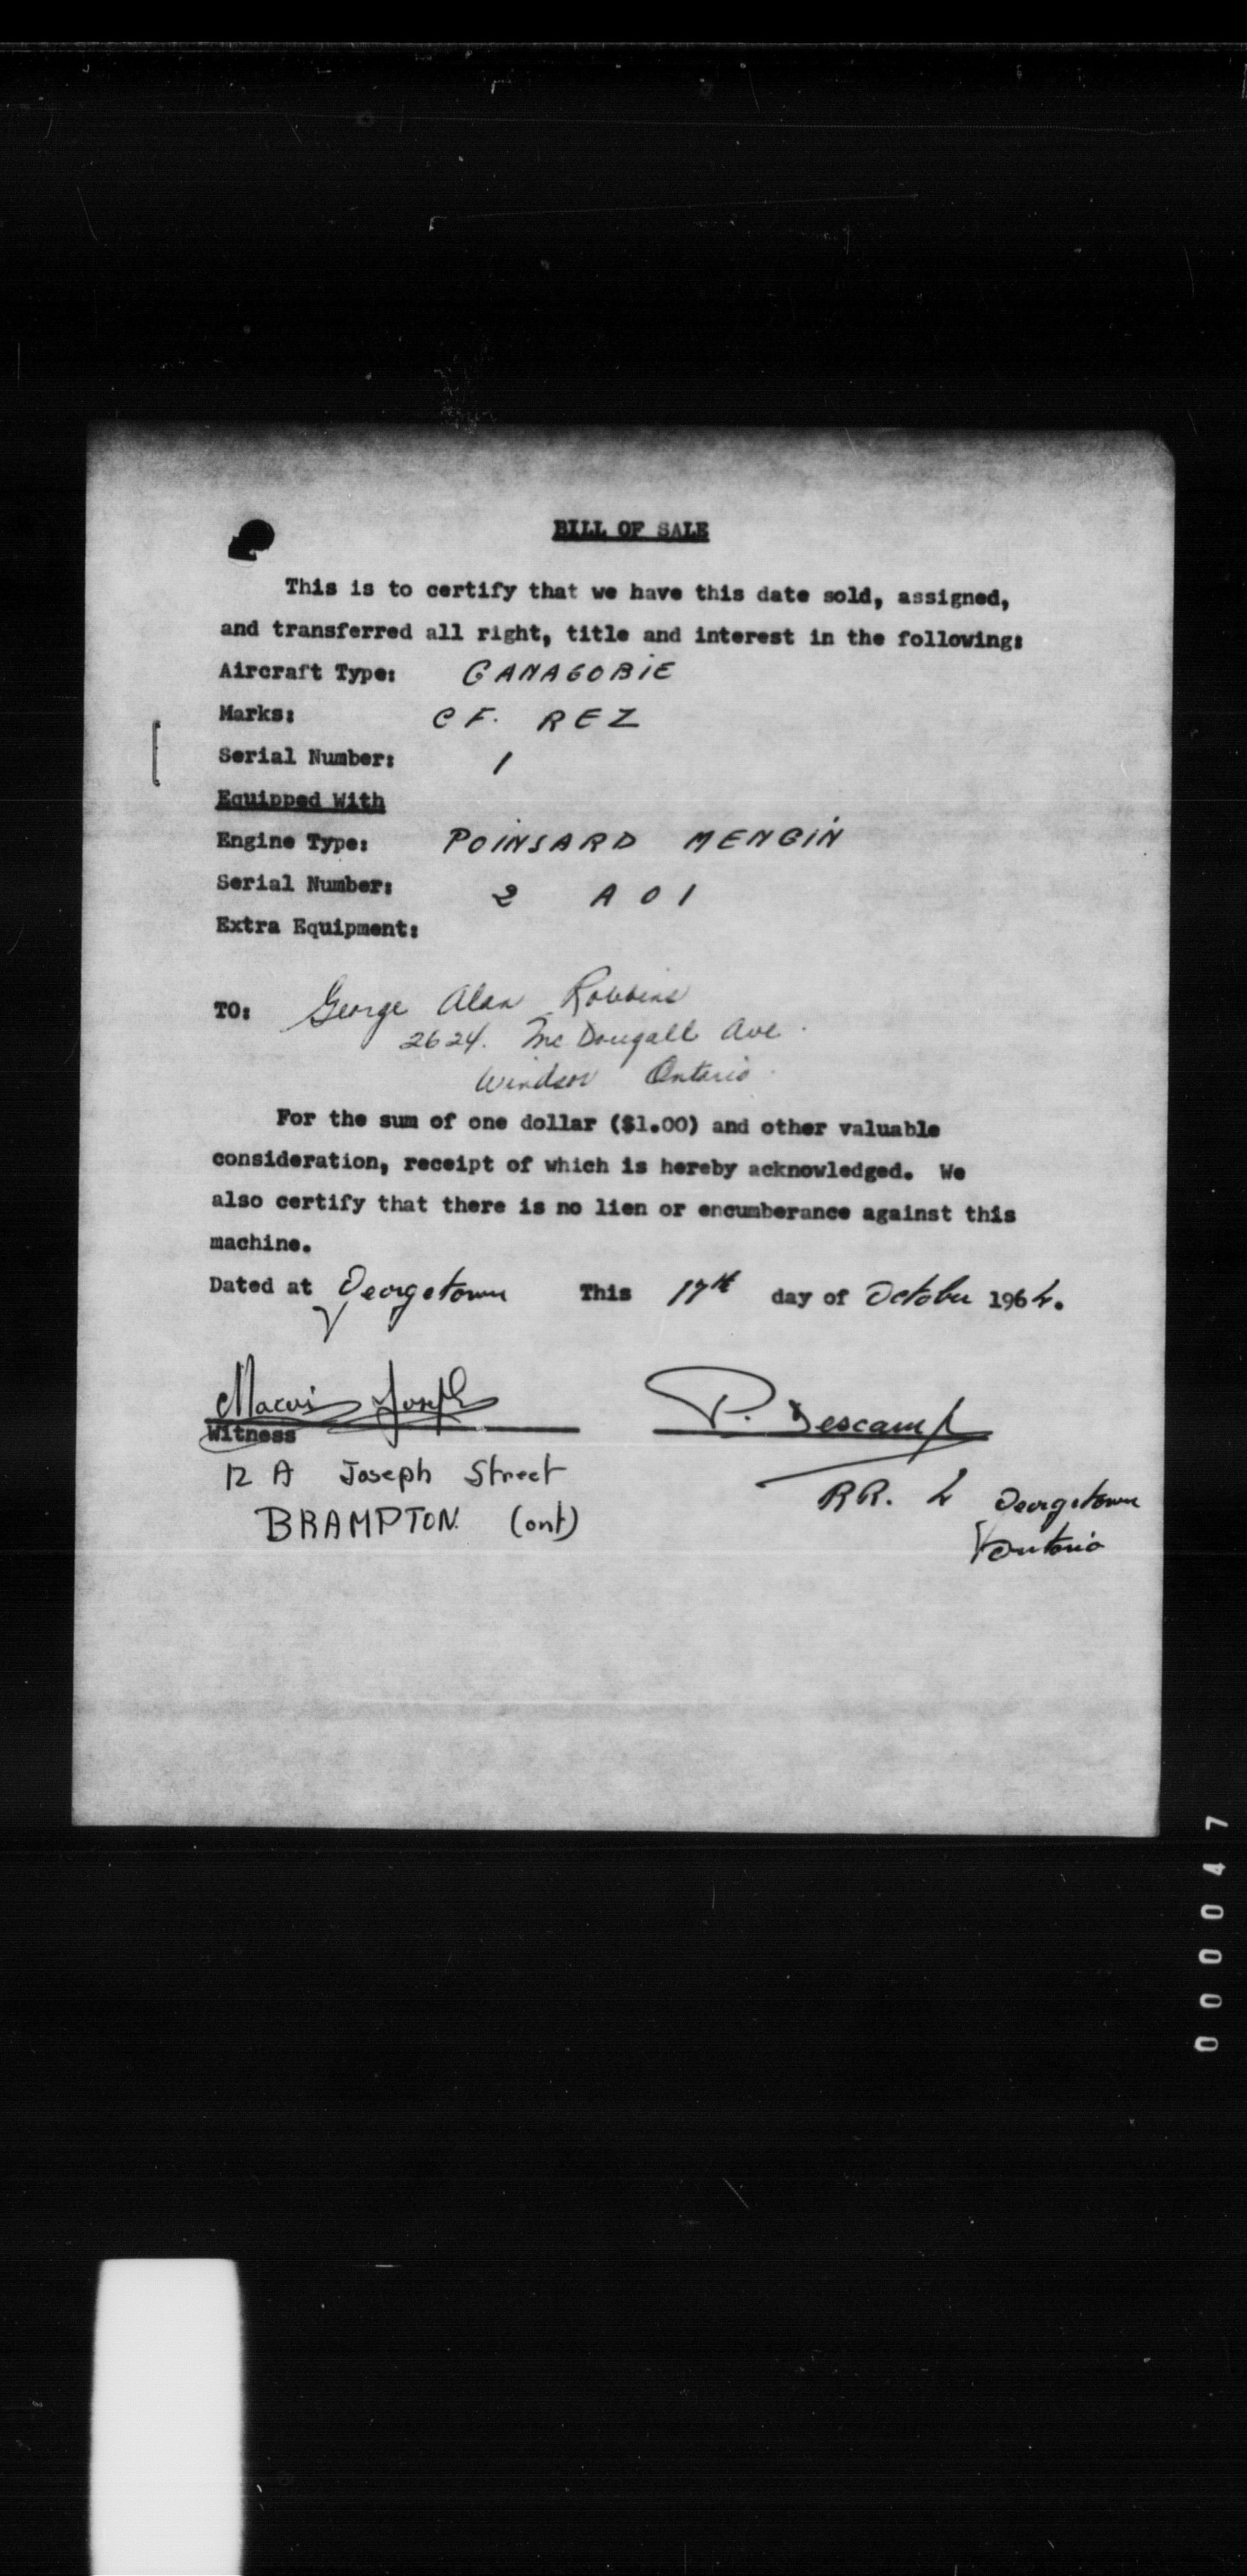 BILL OF SALE
This is to certify that we have this date sold, assigned,
and transferred all right, title and interest in the following:
Aircraft Type: GANAGOBIE
Marks: CF. REZ
Serial Number: 1
Equipped With
Engine Type: POINSARD MENGIN
Serial Number: 2 A01
Extra Equipment:
TO: George Alan Robbins
2624. McDougall Ave.
Windsor Ontario.
For the sum of one dollar ($1.00) and other valuable
consideration, receipt of which is hereby acknowledged. We
also certify that there is no lien or encumberance against this
machine.
Dated at Georgetown This 17th day of October 1964.
Joseph P. Descamp
Witness
12 A Joseph Street
RR. Georgetown
BRAMPTON. (ont)
Ontario
000047